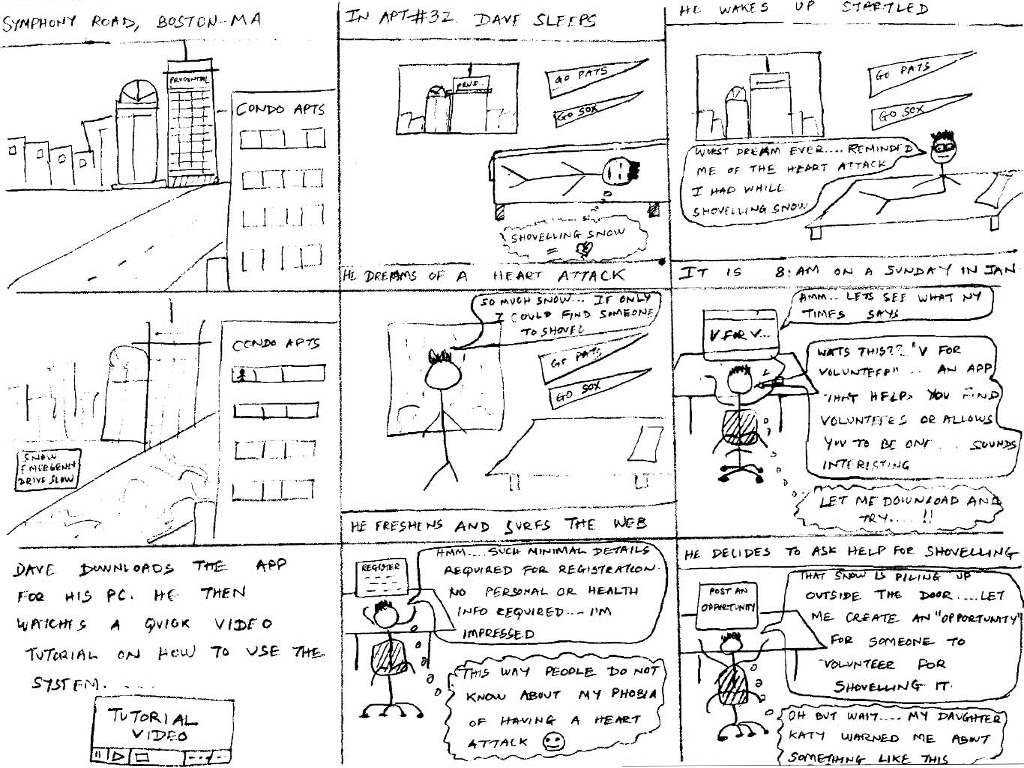 SYMPHONY ROAD, BOSTON-MA
PRUDENTIAL
CONDO APTS
IN APT#32 DAVE SLEEPS
PRUD..
GO PATS
GO SOX
SHOVELLING SNOW
=
HE DREAMS OF A HEART ATTACK
HE WAKES UP STARTLED
GO PATS
GO SOX
WORST DREAM EVER.... REMINDED
ME OF THE HEART ATTACK
I HAD WHILE
SHOVELLING SNOW
IT IS 8:AM ON A SUNDAY IN JAN
CONDO APTS
SNOW
EMERGENCY
DRIVE SLOW
SO MUCH SNOW... IF ONLY
I COULD FIND SOMEONE
TO SHOVEL
GO PATS
GO SOX
HE FRESHENS AND SURFS THE WEB
HMM.. LETS SEE WHAT NY
TIMES SAYS
V FOR V...
WATS THIS?? "V FOR
VOLUNTEER".. AN APP
THAT HELPS YOU FIND
VOLUNTEERS OR ALLOWS
YOU TO BE ONE... SOUNDS
INTERISTING
LET ME DOWNLOAD AND
TRY.... !!
DAVE DOWNLOADS THE APP
FOR HIS PC. HE THEN
WATCHES A QUICK VIDEO
TUTORIAL ON HOW TO USE THE
SYSTEM.....
TUTORIAL
VIDEO
REGISTER
HMM....SUCH MINIMAL DETAILS
REQUIRED FOR REGISTRATION.
NO PERSONAL OR HEALTH
INFO REQUIRED... I'M
IMPRESSED
THIS WAY PEOPLE DO NOT
KNOW ABOUT MY PHOBIA
OF HAVING A HEART
ATTACK
HE DECIDES TO ASK HELP FOR SHOVELLING
POST AN
OPPORTUNITY
THAT SNOW IS PILING UP
OUTSIDE THE DOOR....LET
ME CREATE AN "OPPORTUNITY"
FOR SOMEONE TO
VOLUNTEER FOR
SHOVELLING IT.
OH BUT WAIT.... MY DAUGHTER
KATY WARNED ME ABOUT
SOMETHING LIKE THIS